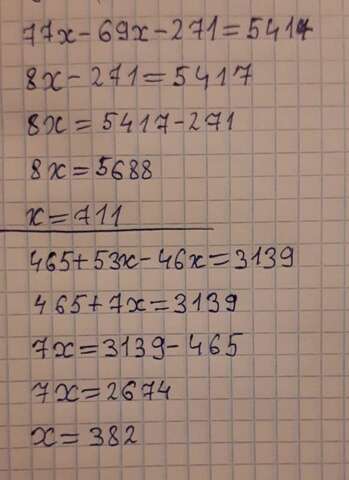 77x-69x-271=5417
8x-271=5417
8x=5417-271
8x=5688
x=711
465+53x-46x=3139
465+7x=3139
7x=3139-465
7x=2674
x=382